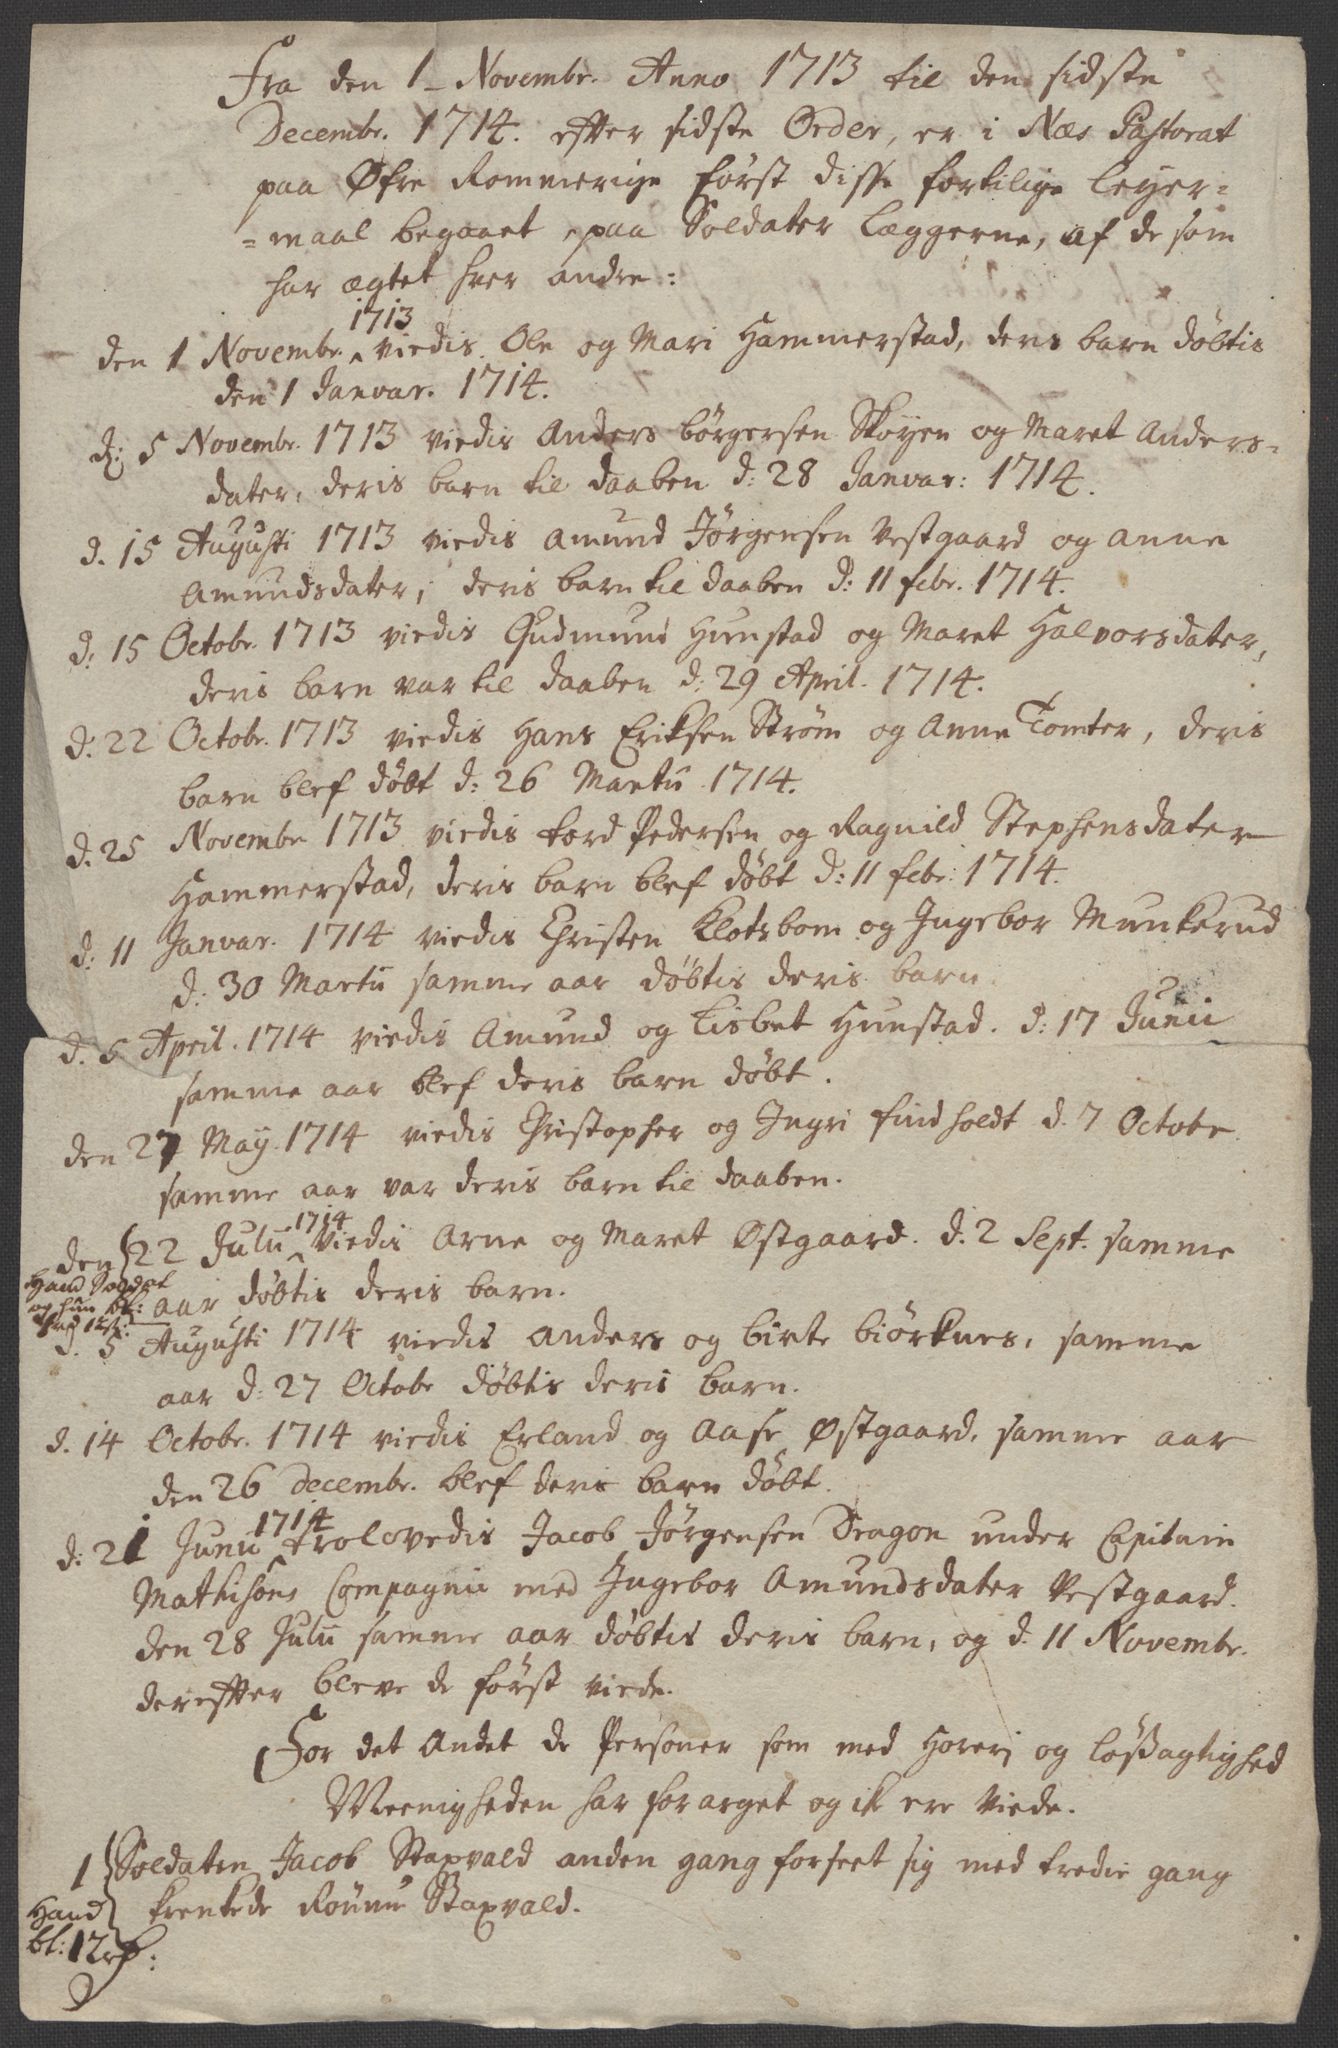 Fra den 1 Novembr. Anno 1713 til den sidste
Decembr. 1714. efter sidste Order, er i Næs Pastorat
paa Øfre Rommerige først disse fortilige leyer=
=maal begaaet, paa Soldater Læggerne, af de som
har ægtet hver andre:
den 1 Novembr. 1713 viedis Ole og Mari Hammerstad, deris barn døbtis
den 1 Januar. 1714.
d: 5 Novembr. 1713 viedis Anders Børgersen Skøyen og Maret Anders=
dater, deris barn til daaben d: 28 Januar: 1714.
d. 15 Augusti 1713 viedis Amund Jørgensen Vestgaard og Anne
Amundsdater, deris barn til daaben d: 11 febr. 1714.
d: 15 Octobr. 1713 viedis Gudmund Hunstad og Maret Halvorsdater,
deris barn var til daaben d: 29 April. 1714.
d: 22 Octobr. 1713 viedis Hans Eriksen Strøm og Anne Tomter, deris
barn blef døbt d: 26 Martii 1714.
d. 25 Novembr 1713 viedis Tord Pedersen og Ragnild Stephensdater
Hammerstad, deris barn blef døbt d: 11 febr: 1714.
d: 11 Januar. 1714 viedis Christen Klotsbom og Ingebor Munkerud
d: 30 Martii samme aar døbtis deris barn
d. 5 April. 1714 viedis Amund og Lisbet Hunstad. d: 17 Junii
samme aar blef deris barn døbt.
den 27 May. 1714 viedis Christopher og Ingri findholdt d. 7 Octobr
samme aar var deris barn til daaben.
den 22 Julii 1714 viedis Arne og Maret Østgaard. d. 2 Sept. samme
Hand Soldat
og hun bt:
aar døbtis deris barn.
d. 5 Augusti 1714 viedis Anders og Birte Biørknes, samme
aar d: 27 Octobr døbtis deris barn.
d. 14 Octobr. 1714 viedis Erland og Aase Østgaard, samme aar
den 26 Decembr. blef deris barn døbt.
d: 21 Junii 1714 trolovedis Jacob Jørgensen Dragon under Capitain
Mathisons Compagnie med Ingebor Amundsdater Vestgaard.
den 28 Julii samme aar døbtis deris barn, og d. 11 Novembr.
derefter bleve de først viede.
For det Andet de Personer som med Horerj og løsagtighed
Meenigheden har forarget og ik ere Viede.
1 Soldaten Jacob Stapvald anden gang forseet sig med tredie gang
krenkede Rønnu Stapvald.
Hand
bt: 12 rd: